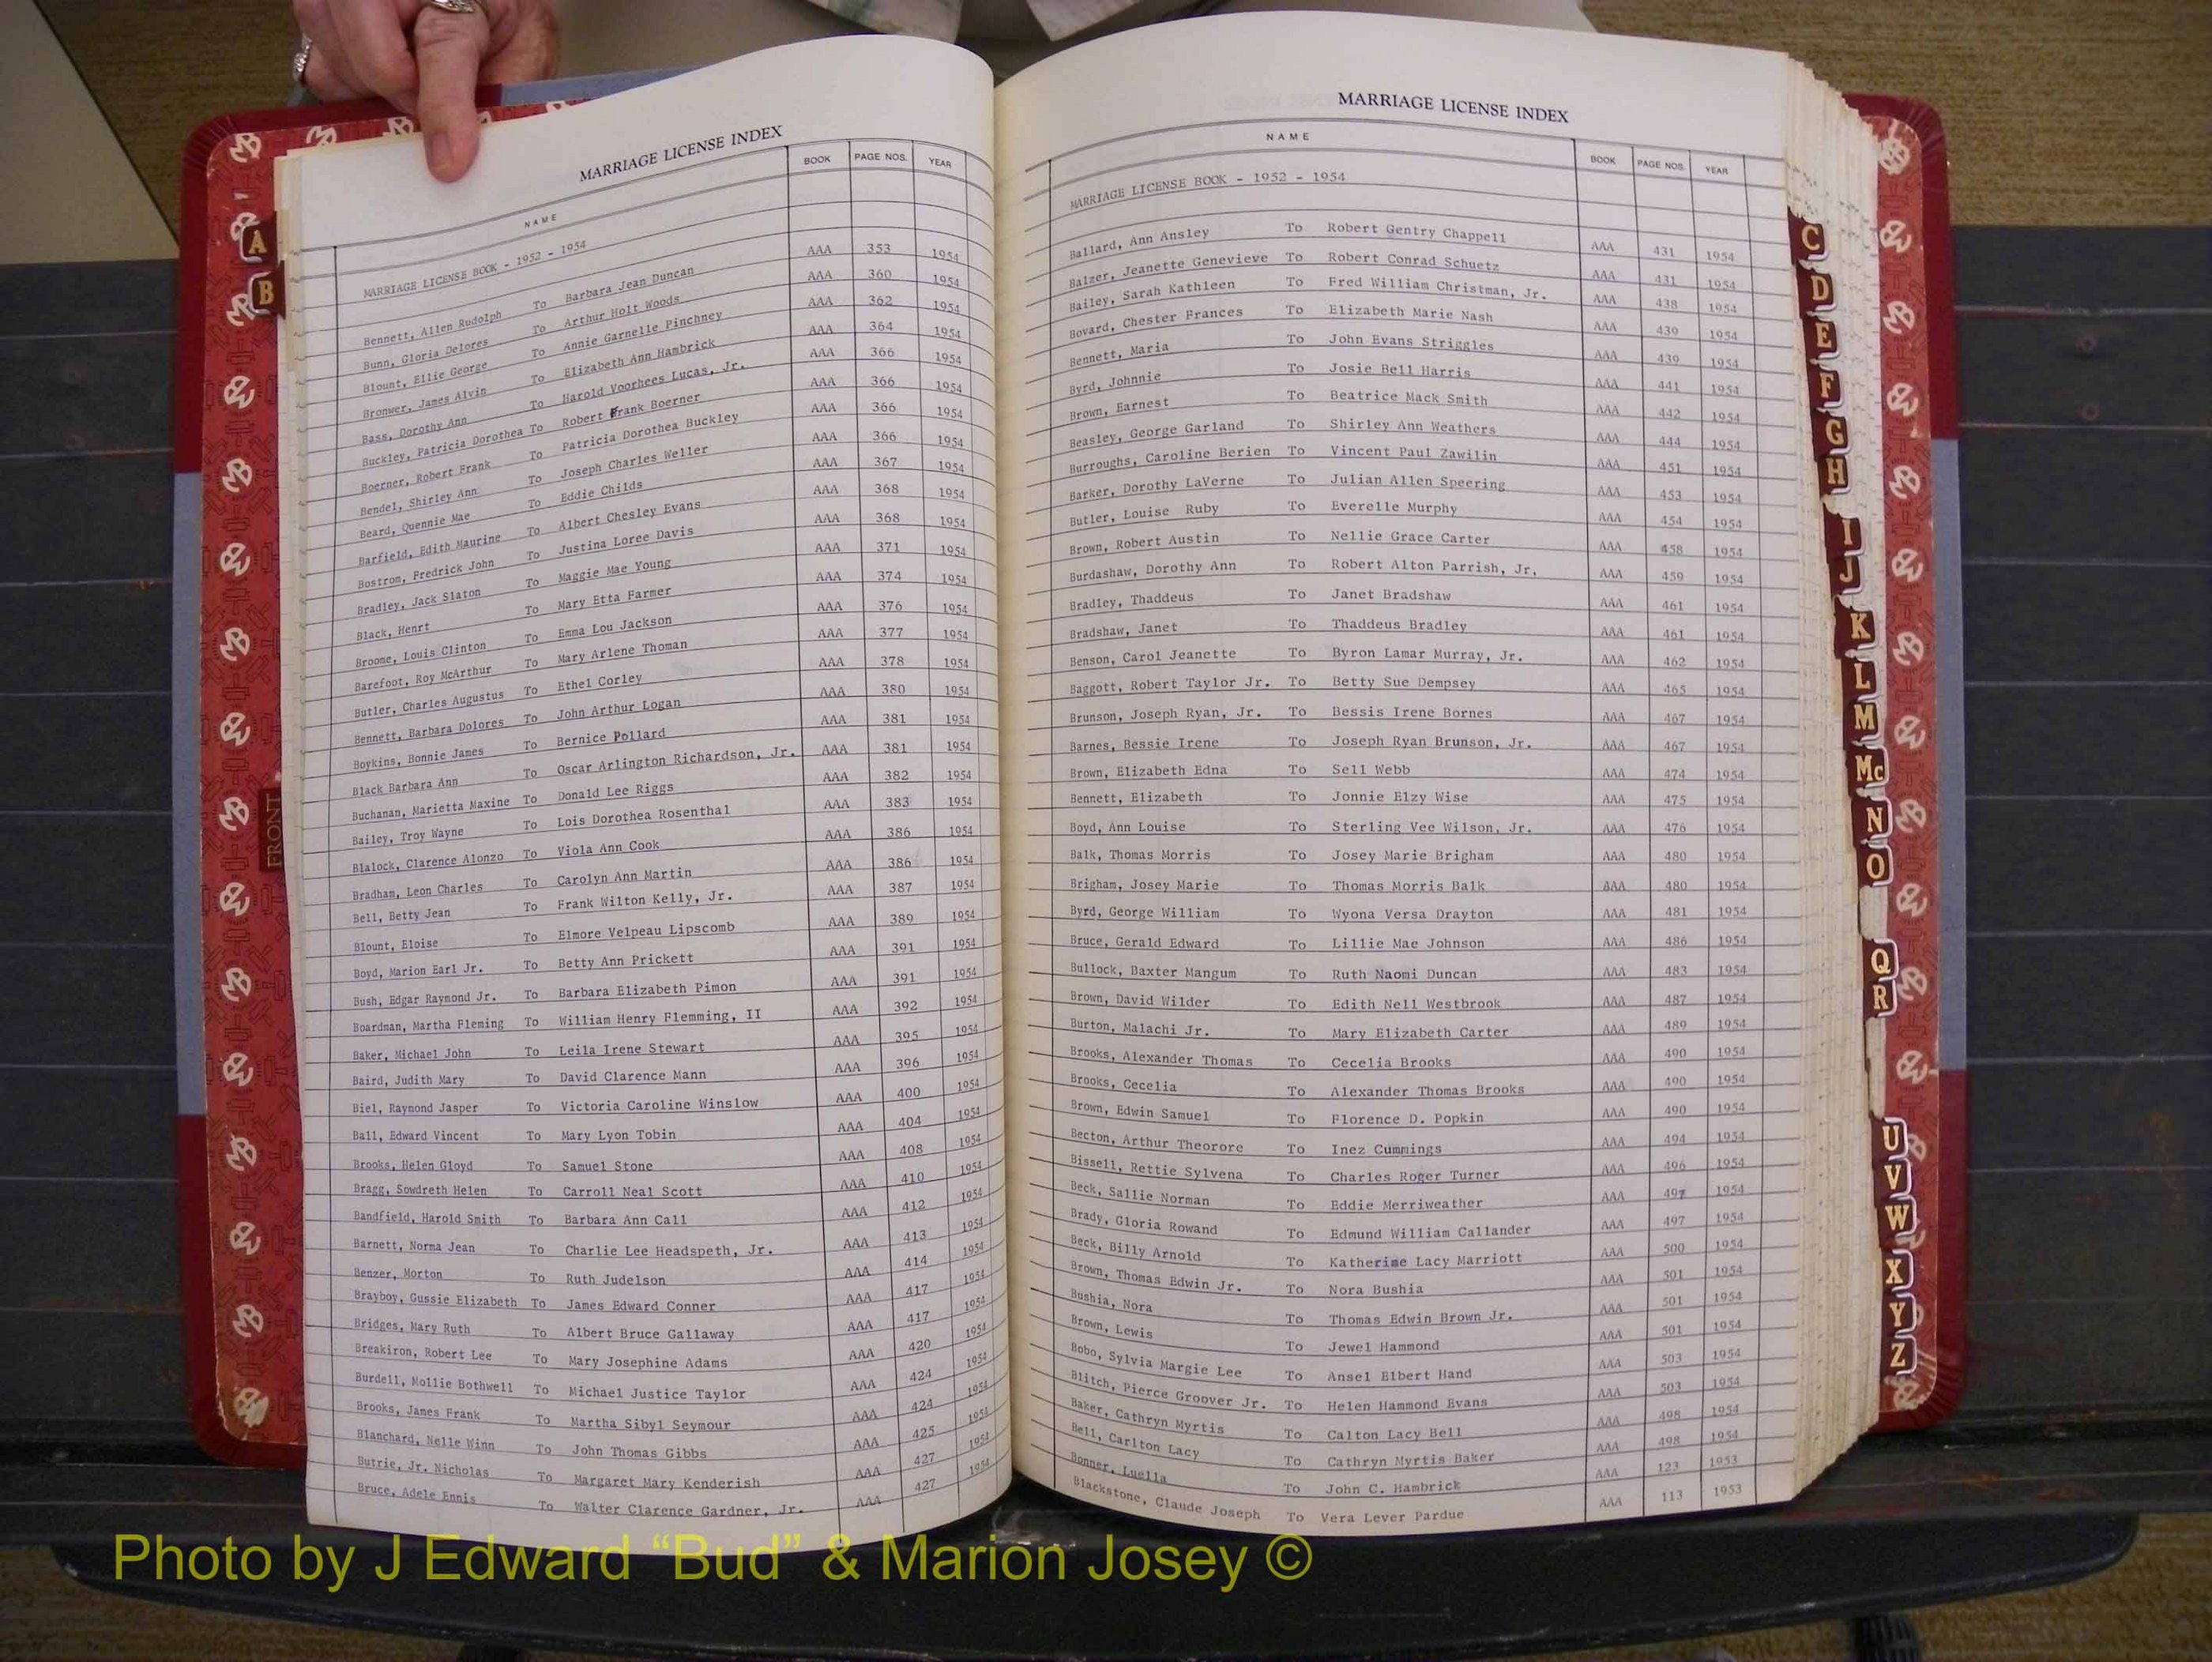 MARRIAGE LICENSE INDEX
NAME BOOK PAGE NOS. YEAR
MARRIAGE LICENSE BOOK - 1952 - 1954
Bennett, Allen Rudolph To Barbara Jean Duncan AAA 353 1954
Bunn, Gloria Delores To Arthur Holt Woods AAA 360 1954
Blount, Ellie George To Annie Garnelle Pinchney AAA 362 1954
Bronwer, James Alvin To Elizabeth Ann Hambrick AAA 364 1954
Bass, Dorothy Ann To Harold Voorhees Lucas, Jr. AAA 366 1954
Buckley, Patricia Dorothea To Robert Frank Boerner AAA 366 1954
Boerner, Robert Frank To Patricia Dorothea Buckley AAA 366 1954
Bendel, Shirley Ann To Joseph Charles Weller AAA 366 1954
Beard, Quennie Mae To Eddie Childs AAA 367 1954
Barfield, Edith Maurine To Albert Chesley Evans AAA 368 1954
Bostrom, Fredrick John To Justina Loree Davis AAA 368 1954
Bradley, Jack Slaton To Maggie Mae Young AAA 371 1954
Black, Henrt To Mary Etta Farmer AAA 374 1954
Broome, Louis Clinton To Emma Lou Jackson AAA 376 1954
Barefoot, Roy McArthur To Mary Arlene Thoman AAA 377 1954
Butler, Charles Augustus To Ethel Corley AAA 378 1954
Bennett, Barbara Dolores To John Arthur Logan AAA 380 1954
Boykins, Bonnie James To Bernice Pollard AAA 381 1954
Black Barbara Ann To Oscar Arlington Richardson, Jr. AAA 381 1954
Buchanan, Marietta Maxine To Donald Lee Riggs AAA 382 1954
Bailey, Troy Wayne To Lois Dorothea Rosenthal AAA 383 1954
Blalock, Clarence Alonzo To Viola Ann Cook AAA 386 1954
Bradham, Leon Charles To Carolyn Ann Martin AAA 386 1954
Bell, Betty Jean To Frank Wilton Kelly, Jr. AAA 387 1954
Blount, Eloise To Elmore Velpeau Lipscomb AAA 389 1954
Boyd, Marion Earl Jr. To Betty Ann Prickett AAA 391 1954
Bush, Edgar Raymond Jr. To Barbara Elizabeth Pimon AAA 391 1954
Boardman, Martha Fleming To William Henry Flemming, II AAA 392 1954
Baker, Michael John To Leila Irene Stewart AAA 395 1954
Baird, Judith Mary To David Clarence Mann AAA 396 1954
Biel, Raymond Jasper To Victoria Caroline Winslow AAA 400 1954
Ball, Edward Vincent To Mary Lyon Tobin AAA 404 1954
Brooks, Helen Gloyd To Samuel Stone AAA 408 1954
Bragg, Sowdreth Helen To Carroll Neal Scott AAA 410 1954
Bandfield, Harold Smith To Barbara Ann Call AAA 412 1954
Barnett, Norma Jean To Charlie Lee Headspeth, Jr. AAA 413 1954
Benzer, Morton To Ruth Judelson AAA 414 1954
Brayboy, Gussie Elizabeth To James Edward Conner AAA 417 1954
Bridges, Mary Ruth To Albert Bruce Gallaway AAA 417 1954
Breakiron, Robert Lee To Mary Josephine Adams AAA 420 1954
Burdell, Mollie Bothwell To Michael Justice Taylor AAA 424 1954
Brooks, James Frank To Martha Sibyl Seymour AAA 424 1954
Blanchard, Nelle Winn To John Thomas Gibbs AAA 425 1954
Butrie, Jr. Nicholas To Margaret Mary Kenderish AAA 427 1954
Bruce, Adele Ennis To Walter Clarence Gardner, Jr. AAA 427 1954
MARRIAGE LICENSE INDEX
NAME BOOK PAGE NOS. YEAR
MARRIAGE LICENSE BOOK - 1952 - 1954
Ballard, Ann Ansley To Robert Gentry Chappell AAA 431 1954
Balzer, Jeanette Genevieve To Robert Conrad Schuetz AAA 431 1954
Bailey, Sarah Kathleen To Fred William Christman, Jr. AAA 438 1954
Bovard, Chester Frances To Elizabeth Marie Nash AAA 439 1954
Bennett, Maria To John Evans Striggles AAA 439 1954
Byrd, Johnnie To Josie Bell Harris AAA 441 1954
Brown, Earnest To Beatrice Mack Smith AAA 442 1954
Beasley, George Garland To Shirley Ann Weathers AAA 444 1954
Burroughs, Caroline Berien To Vincent Paul Zawilin AAA 451 1954
Barker, Dorothy LaVerne To Julian Allen Speering AAA 453 1954
Butler, Louise Ruby To Everelle Murphy AAA 454 1954
Brown, Robert Austin To Nellie Grace Carter AAA 458 1954
Burdashaw, Dorothy Ann To Robert Alton Parrish, Jr. AAA 459 1954
Bradley, Thaddeus To Janet Bradshaw AAA 461 1954
Bradshaw, Janet To Thaddeus Bradley AAA 461 1954
Benson, Carol Jeanette To Byron Lamar Murray, Jr. AAA 462 1954
Baggott, Robert Taylor Jr. To Betty Sue Dempsey AAA 465 1954
Brunson, Joseph Ryan, Jr. To Bessis Irene Bornes AAA 467 1954
Barnes, Bessie Irene To Joseph Ryan Brunson, Jr. AAA 467 1954
Brown, Elizabeth Edna To Sell Webb AAA 474 1954
Bennett, Elizabeth To Jonnie Elzy Wise AAA 475 1954
Boyd, Ann Louise To Sterling Vee Wilson, Jr. AAA 476 1954
Balk, Thomas Morris To Josey Marie Brigham AAA 480 1954
Brigham, Josey Marie To Thomas Morris Balk AAA 480 1954
Byrd, George William To Wyona Versa Drayton AAA 481 1954
Bruce, Gerald Edward To Lillie Mae Johnson AAA 486 1954
Bullock, Baxter Mangum To Ruth Naomi Duncan AAA 483 1954
Brown, David Wilder To Edith Nell Westbrook AAA 487 1954
Burton, Malachi Jr. To Mary Elizabeth Carter AAA 489 1954
Brooks, Alexander Thomas To Cecelia Brooks AAA 490 1954
Brooks, Cecelia To Alexander Thomas Brooks AAA 490 1954
Brown, Edwin Samuel To Florence D. Popkin AAA 490 1954
Becton, Arthur Theorore To Inez Cummings AAA 494 1954
Bissell, Rettie Sylvena To Charles Roger Turner AAA 496 1954
Beck, Sallie Norman To Eddie Merriweather AAA 497 1954
Brady, Gloria Rowand To Edmund William Callander AAA 497 1954
Beck, Billy Arnold To Katherine Lacy Marriott AAA 500 1954
Brown, Thomas Edwin Jr. To Nora Bushia AAA 501 1954
Bushia, Nora To Thomas Edwin Brown Jr. AAA 501 1954
Brown, Lewis To Jewel Hammond AAA 501 1954
Bobo, Sylvia Margie Lee To Ansel Elbert Hand AAA 503 1954
Blitch, Pierce Groover Jr. To Helen Hammond Evans AAA 503 1954
Baker, Cathryn Myrtis To Calton Lacy Bell AAA 498 1954
Bell, Carlton Lacy To Cathryn Myrtis Baker AAA 498 1954
Bonner, Luella To John C. Hambrick AAA 123 1953
Blackstone, Claude Joseph To Vera Lever Pardue AAA 113 1953
A
B
FRONT
C
D
E
F
G
H
I
J
K
L
M
Mc
N
O
Q
R
U
V
W
X
Y
Z
Photo by J Edward “Bud” & Marion Josey ©